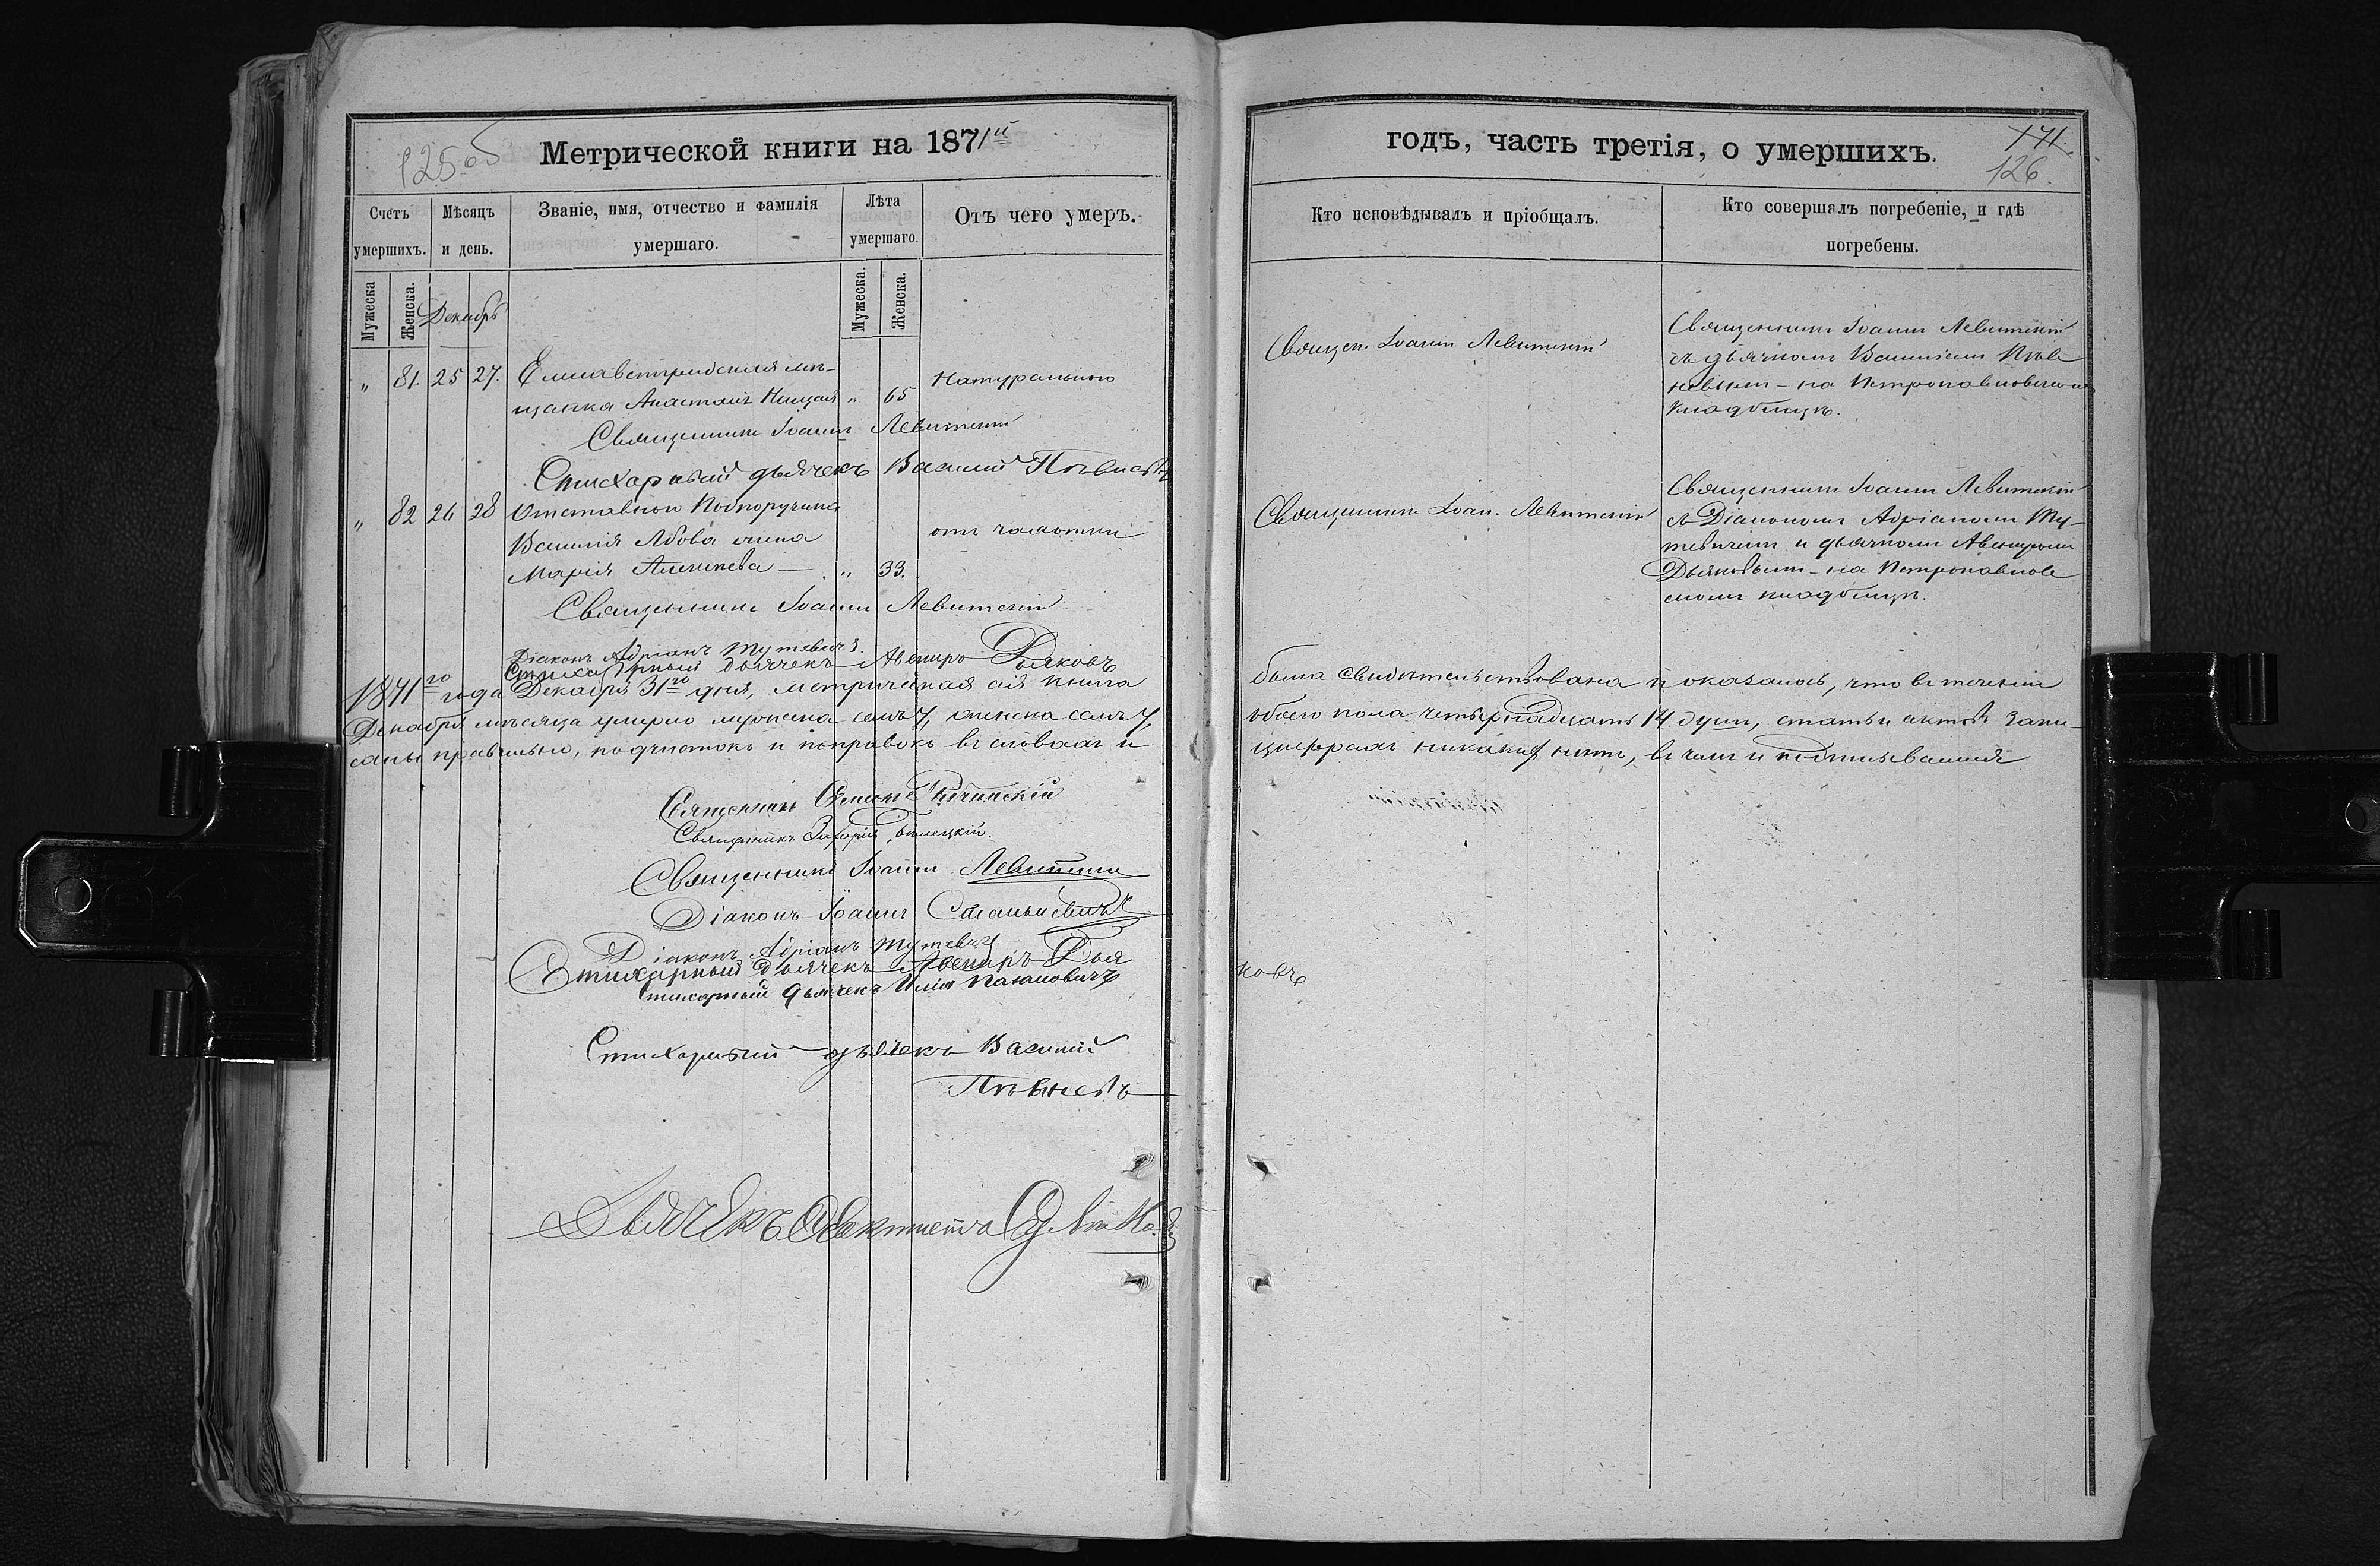 125 об
Метрической книги на 1871й
Счетъ умершихъ.
Мѣсяцъ и день.
Званіе, имя, отчество и фамилія умершаго.
Лѣта умершаго.
Отъ чего умеръ.
Мужеска
Женска.
Декабрь
Мужеска.
Женска.
" 81. 25 27. Елисаветградская мѣ-
щанка Анастасія " 65 Натурально
Священникъ Іоаннъ Левитскій
Стихарный дьячекъ Василій Пѣвневъ
" 82 26 28 Отставного Подпоручика
Василія Львова жена от чахотки
Марія Алексѣева — " 33.
Священникъ Іоаннъ Левитскій
Діаконъ Адріанъ Тутевичъ.
Стихарный дьячекъ Авениръ Дьяковъ
1871го года Декабря 31го дня, метрическая сія книга
Декабря мѣсяца умерло мужеска семь 7, женска семь 7,
саны правильно, подчистокъ и поправокъ въ словахъ и
Священникъ
Священникъ Захарія Бѣлецкій.
Священникъ Іоаннъ Левитскій
Діаконъ Іоаннъ Станиславскій
Діаконъ Адріанъ Тутевичъ
Стихарный дьячекъ Авениръ Дья
Стихарный дьячекъ Илія
Стихарный дьячекъ Василій
Пѣвневъ
Дьячекъ
годъ, часть третія, о умершихъ.
171.
126.
Кто исповѣдывалъ и пріобщалъ.
Кто совершалъ погребеніе, и гдѣ погребены.
Священ. Іоаннъ Левитскій
Священникъ Іоаннъ Левитскій
съ дьячкомъ Василіемъ Пѣв
невымъ - на Петропавловскомъ
кладбищѣ.
Священникъ Іоан. Левитскій
Священникъ Іоаннъ Левитскій
съ Діакономъ Адріаномъ Ту-
тевичемъ и дьячкомъ Авениромъ
Дьяковымъ - на Петропавлов
скомъ кладбищѣ.
была свидѣтельствована и оказалось, что въ теченіи
обоего пола четырнадцать 14 душъ, статьи актовъ запи-
цыфрахъ никакихъ нѣтъ, въ чемъ и подписываемся
ковъ